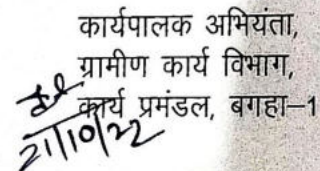 कार्यपालक अभियंता,
ग्रामीण कार्य विभाग,
कार्य प्रमंडल, बगहा–1
21/10/22